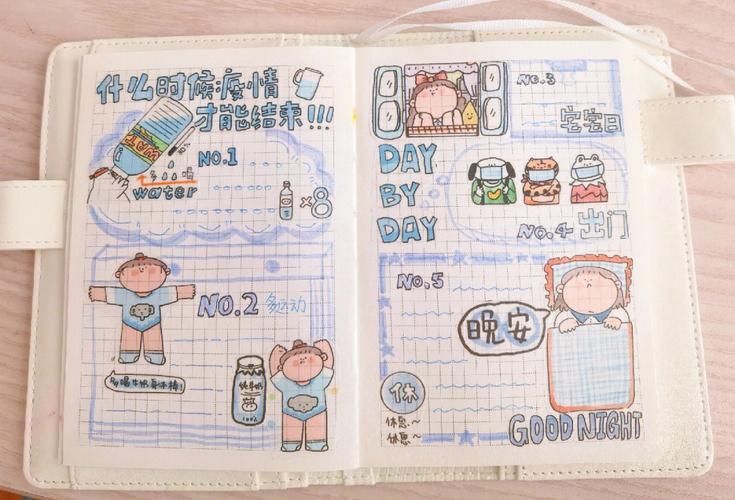 什么时候疫情
才能结束!!!
NO.1
多喝
water
×8
NO.2 多运动
多喝牛奶身体棒!
纯牛奶
100%
NO.3
宅宅日
DAY
BY
DAY
NO.4 出门
NO.5
晚安
休
休息~
休息~
GOOD NIGHT